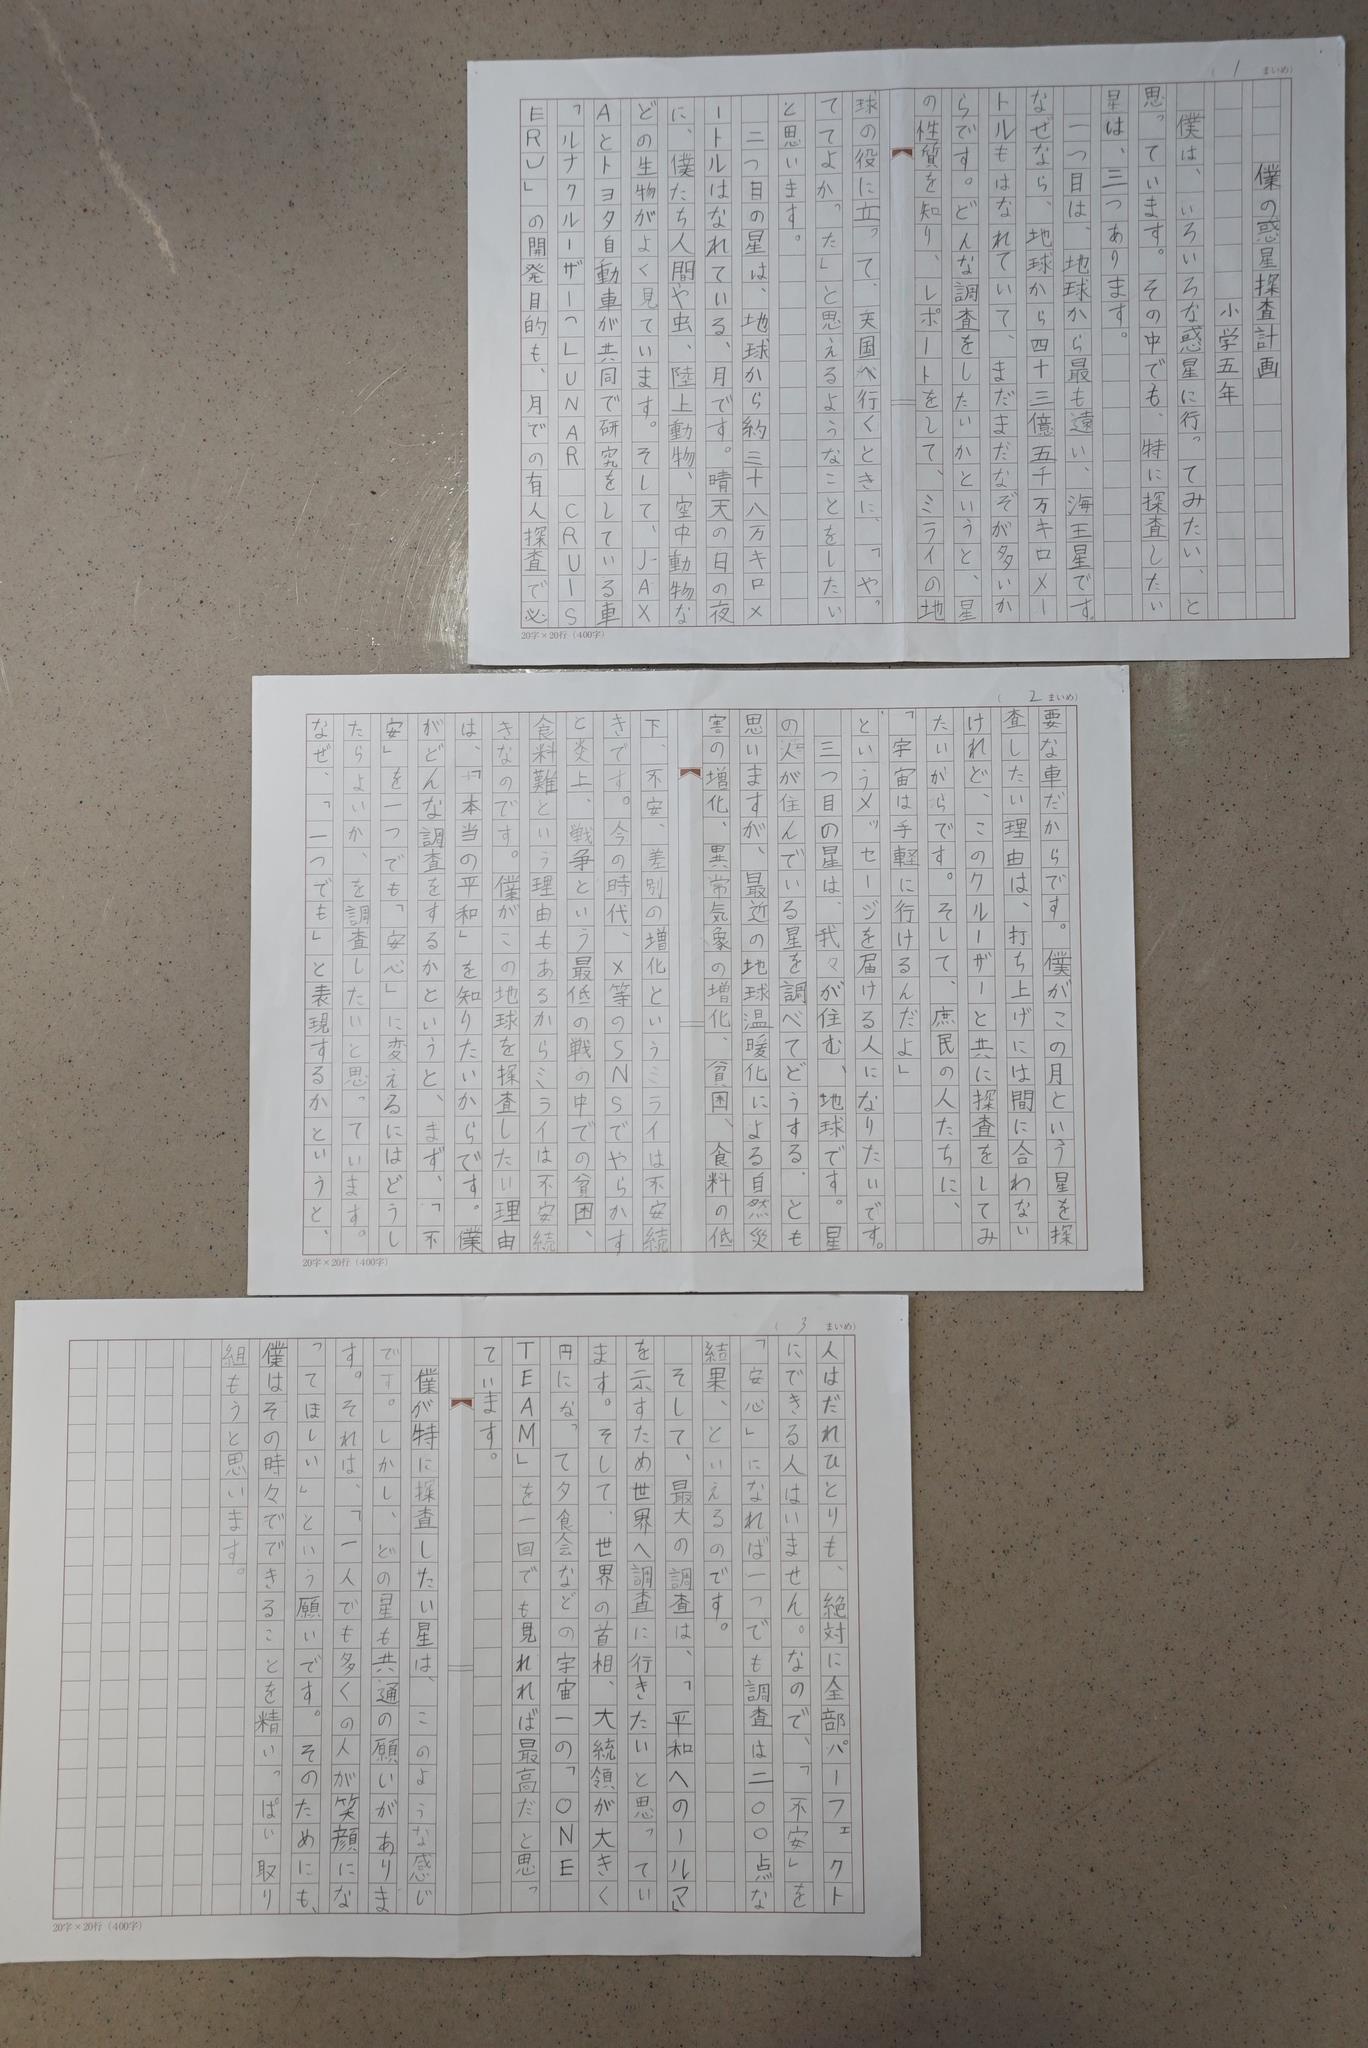 （ 1 まいめ）
僕の惑星探査計画
小学五年
僕は、いろいろな惑星に行ってみたい、と
思っています。その中でも、特に探査したい
星は、三つあります。
一つ目は、地球から最も遠い、海王星です。
なぜなら、地球から四十三億五千万キロメー
トルもはなれていて、まだまだなぞが多いか
らです。どんな調査をしたいかというと、星
の性質を知り、レポートをして、ミライの地
球の役に立って、天国へ行くときに、「やっ
ててよかった」と思えるようなことをしたい
と思います。
二つ目の星は、地球から約三十八万キロメ
ートルはなれている、月です。晴天の日の夜
に、僕たち人間や虫、陸上動物、空中動物な
どの生物がよく見ています。そして、JAX
Aとトヨタ自動車が共同で研究をしている車
「ルナクルーザー（LUNAR CRUIS
ERU」の開発目的も、月での有人探査で必
20字×20行（400字）
（ 2 まいめ）
要な車だからです。僕がこの月という星を探
査したい理由は、打ち上げには間に合わない
けれど、このクルーザーと共に探査をしてみ
たいからです。そして、庶民の人たちに、
「宇宙は手軽に行けるんだよ」
というメッセージを届ける人になりたいです。
三つ目の星は、我々が住む、地球です。星
の人が住んでいる星を調べてどうする、とも
思いますが、最近の地球温暖化による自然災
害の増化、異常気象の増化、貧困、食料の低
下、不安、差別の増化というミライは不安続
きです。今の時代、X等のSNSでやらかす
と炎上、戦争という最低の戦の中での貧困、
食料難という理由もあるからミライは不安続
きなのです。僕がこの地球を探査したい理由
は、「本当の平和」を知りたいからです。僕
がどんな調査をするかというと、まず、「不
安」を一つでも「安心」に変えるにはどうし
たらよいか、を調査したいと思っています。
なぜ、「一つでも」と表現するかというと、
20字×20行（400字）
（ 3 まいめ）
人はだれひとりも、絶対に全部パーフェクト
にできる人はいません。なので、「不安」を
「安心」になれば一つでも調査は二〇〇点な
結果、といえるのです。
そして、最大の調査は、「平和へのールマ」
を示すため世界へ調査に行きたいと思ってい
ます。そして、世界の首相、大統領が大きく
円になって夕食会などの宇宙一の「ONE
TEAM」を一回でも見れれば最高だと思っ
ています。
僕が特に探査したい星は、このような感じ
です。しかし、どの星も共通の願いがありま
す。それは、「一人でも多くの人が笑顔にな
ってほしい」という願いです。そのためにも、
僕はその時々でできることを精いっぱい取り
組もうと思います。
20字×20行（400字）